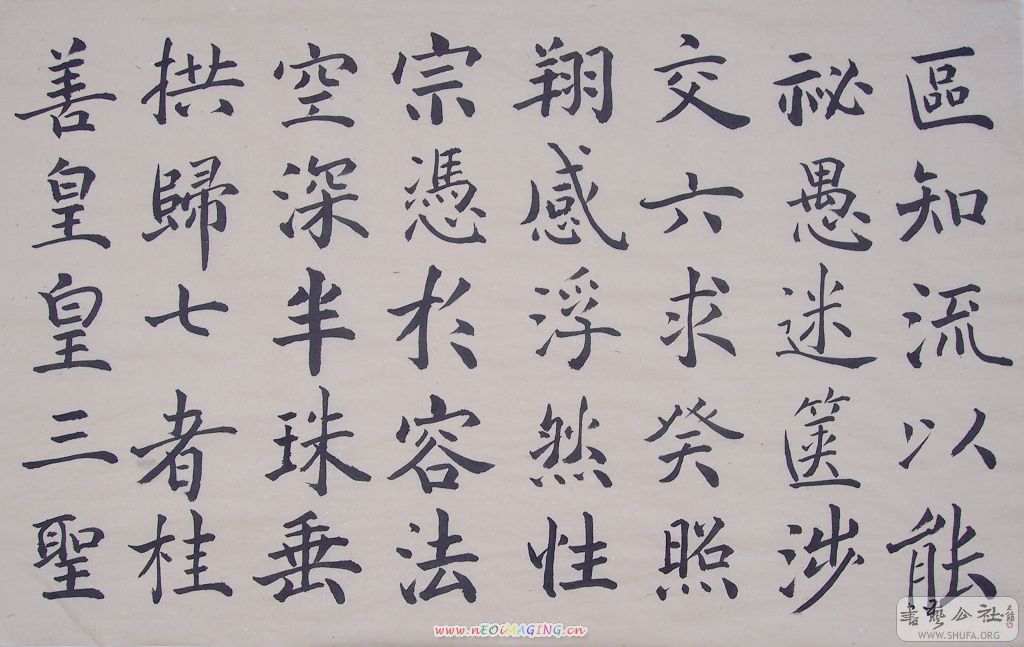 區知流以能
祕愚迷篋涉
交六求癸照
翔感浮然性
宗憑於容法
空深半珠垂
拱歸七者桂
善皇皇三聖
www.nEOiMAGING.cn
書藝公社
WWW.SHUFA.ORG